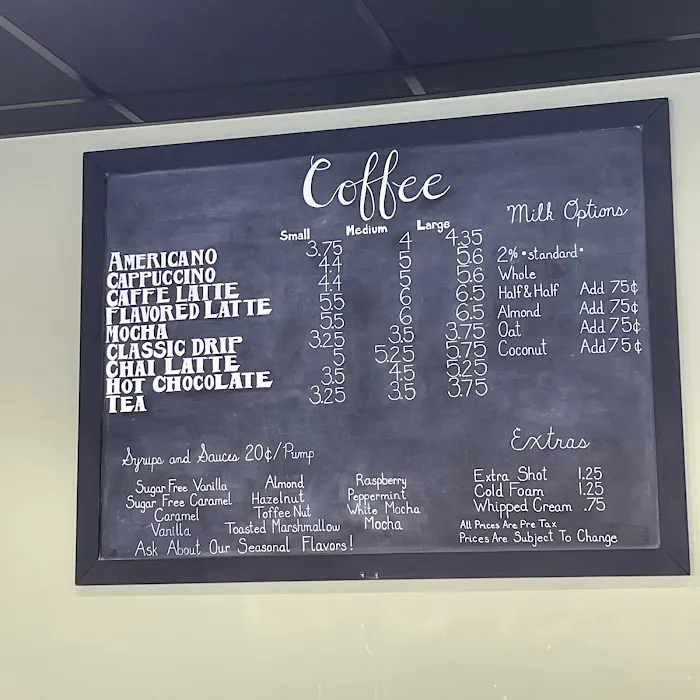 Coffee
Small Medium Large
AMERICANO 3.75 4 4.35
CAPPUCCINO 4.4 5 5.6
CAFFE LATTE 4.4 5 5.6
FLAVORED LATTE 5.5 6 6.5
MOCHA 5.5 6 6.5
CLASSIC DRIP 3.25 3.5 3.75
CHAI LATTE 5 5.25 5.75
HOT CHOCOLATE 3.5 4.5 5.25
TEA 3.25 3.5 3.75
Milk Options
2% •standard•
Whole
Half & Half Add 75¢
Almond Add 75¢
Oat Add 75¢
Coconut Add 75¢
Syrups and Sauces 20¢/Pump
Sugar Free Vanilla Almond Raspberry
Sugar Free Caramel Hazelnut Peppermint
Caramel Toffee Nut White Mocha
Vanilla Toasted Marshmallow Mocha
Ask About Our Seasonal Flavors!
Extras
Extra Shot 1.25
Cold Foam 1.25
Whipped Cream .75
All Prices Are Pre Tax
Prices Are Subject To Change